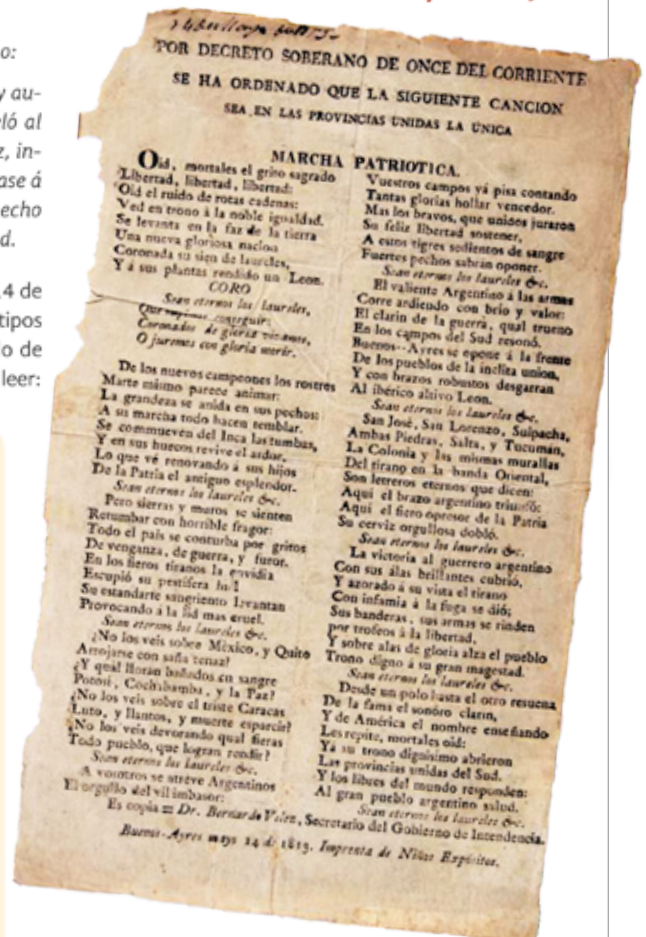 o:
y au-
eló al
z, in-
ase á
echo
d.
14 de
tipos
lo de
leer:
POR DECRETO SOBERANO DE ONCE DEL CORRIENTE
SE HA ORDENADO QUE LA SIGUIENTE CANCION
SEA EN LAS PROVINCIAS UNIDAS LA ÚNICA
MARCHA PATRIOTICA.
Oid, mortales el grito sagrado
Libertad, libertad, libertad:
Oid el ruido de rotas cadenas:
Ved en trono à la noble igualdad.
Se levanta en la faz de la tierra
Una nueva gloriosa nacion
Coronada su sien de laureles,
Y à sus plantas rendido un Leon.
CORO
Sean eternos los laureles,
Que supimos conseguir:
Coronados de gloria vivamos,
O juremos con gloria morir.
De los nuevos campeones los rostros
Marte mismo parece animar:
La grandeza se anida en sus pechos:
A su marcha todo hacen temblar.
Se commueven del Inca las tumbas,
Y en sus huecos revive el ardor,
Lo que vé renovando á sus hijos
De la Patria el antiguo esplendor.
Sean eternos los laureles &c.
Pero sierras y muros se sienten
Retumbar con horrible fragor:
Todo el país se conturba por gritos
De venganza, de guerra, y furor.
En los fieros tiranos la envidia
Escupió su pestífera
Su estandarte sangriento levantan
Provocando á la lid mas cruel.
Sean eternos los laureles &c.
¿No los veis sobre México, y Quito
Arrojarse con saña tenaz?
¿Y quál lloran bañados en sangre
Potosí, Cochabamba, y la Paz?
¿No los veis sobre el triste Caracas
Luto, y llantos, y muerte esparcir?
¿No los veis devorando qual fieras
Todo pueblo, que logran rendir?
Sean eternos los laureles &c.
A vosotros se atreve Argentinos
El orgullo del vil imbasor:
Vuestros campos yá pisa contando
Tantas glorias hollar vencedor.
Mas los bravos, que unidos juraron
Su feliz libertad sostener,
A estos tigres sedientos de sangre
Fuertes pechos sabrán oponer.
Sean eternos los laureles &c.
El valiente Argentino á las armas
Corre ardiendo con brio y valor:
El clarin de la guerra, qual trueno
En los campos del Sud resonó.
Buenos-Ayres se opone á la frente
De los pueblos de la inclita union,
Y con brazos robustos desgarran
Al ibérico altivo Leon.
Sean eternos los laureles &c.
San José, San Lorenzo, Suipacha,
Ambas Piedras, Salta, y Tucumán,
La Colonia y las mismas murallas
Del tirano en la banda Oriental,
Son letreros eternos que dicen:
Aquí el brazo argentino triunfó:
Aquí el fiero opresor de la Patria
Su cerviz orgullosa dobló.
Sean eternos los laureles &c.
La victoria al guerrero argentino
Con sus álas brillantes cubrió,
Y azorado á su vista el tirano
Con infamia à la fuga se dió;
Sus banderas, sus armas se rinden
por trofeos à la libertad,
Y sobre alas de gloria alza el pueblo
Trono digno á su gran magestad.
Sean eternos los laureles &c.
Desde un polo hasta el otro resuena
De la fama el sonóro clarin,
Y de América el nombre enseñando
Les repite, mortales oid:
Ya su trono dignísimo abrieron
Las provincias unidas del Sud.
Y los libres del mundo responden:
Al gran pueblo argentino salud.
Sean eternos los laureles &c.
Es copia = Dr. Bernardo Velez, Secretario del Gobierno de Intendencia.
Buenos-Ayres mayo 14 de 1813. Imprenta de Niños Expósitos.